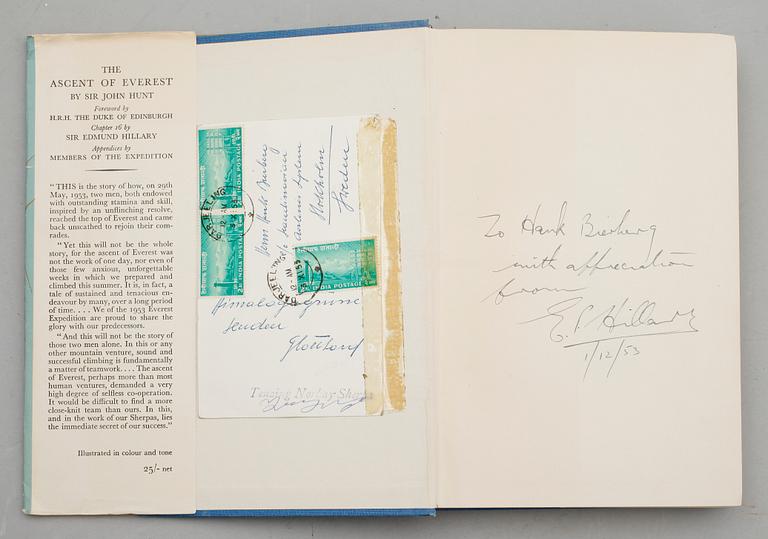 THE
ASCENT OF EVEREST
BY SIR JOHN HUNT
Foreword by
H.R.H. THE DUKE OF EDINBURGH
Chapter 16 by
SIR EDMUND HILLARY
Appendices by
MEMBERS OF THE EXPEDITION
"THIS is the story of how, on 29th
May, 1953, two men, both endowed
with outstanding stamina and skill,
inspired by an unflinching resolve,
reached the top of Everest and came
back unscathed to rejoin their com-
rades.
"Yet this will not be the whole
story, for the ascent of Everest was
not the work of one day, nor even of
those few anxious, unforgettable
weeks in which we prepared and
climbed this summer. It is, in fact, a
tale of sustained and tenacious en-
deavour by many, over a long period
of time. . . . We of the 1953 Everest
Expedition are proud to share the
glory with our predecessors.
"And this will not be the story of
those two men alone. In this or any
other mountain venture, sound and
successful climbing is fundamentally
a matter of teamwork. . . . The ascent
of Everest, perhaps more than most
human ventures, demanded a very
high degree of selfless co-operation.
It would be difficult to find a more
close-knit team than ours. In this,
and in the work of our Sherpas, lies
the immediate secret of our success."
Illustrated in colour and tone
25/- net
INDIA POSTAGE
INDIA POSTAGE
DARJEELING
Airlines System
Stockholm
Sweden
INDIA POSTAGE
DARJEELING
Tenzing Norkay Sherpa
To Hank Bierberg
with appreciation
from
E.P. Hillary
1/12/53